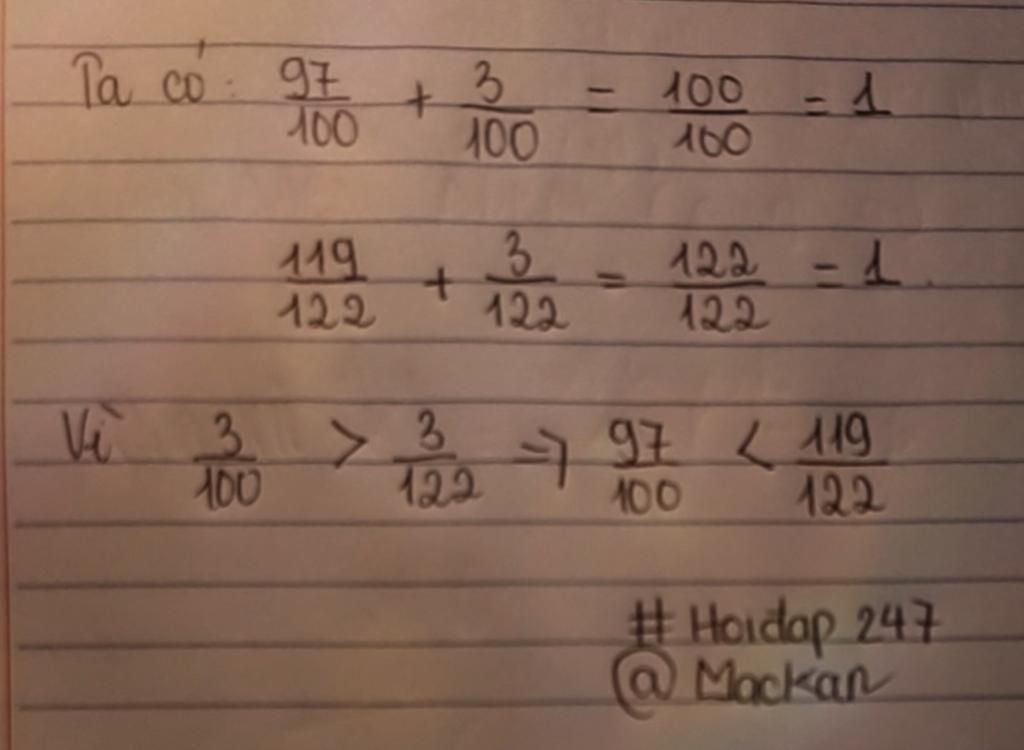 Ta có: 97/100 + 3/100 = 100/100 = 1
119/122 + 3/122 = 122/122 = 1.
Vì 3/100 > 3/122 => 97/100 < 119/122
# Hoidap 247
@ Mackan